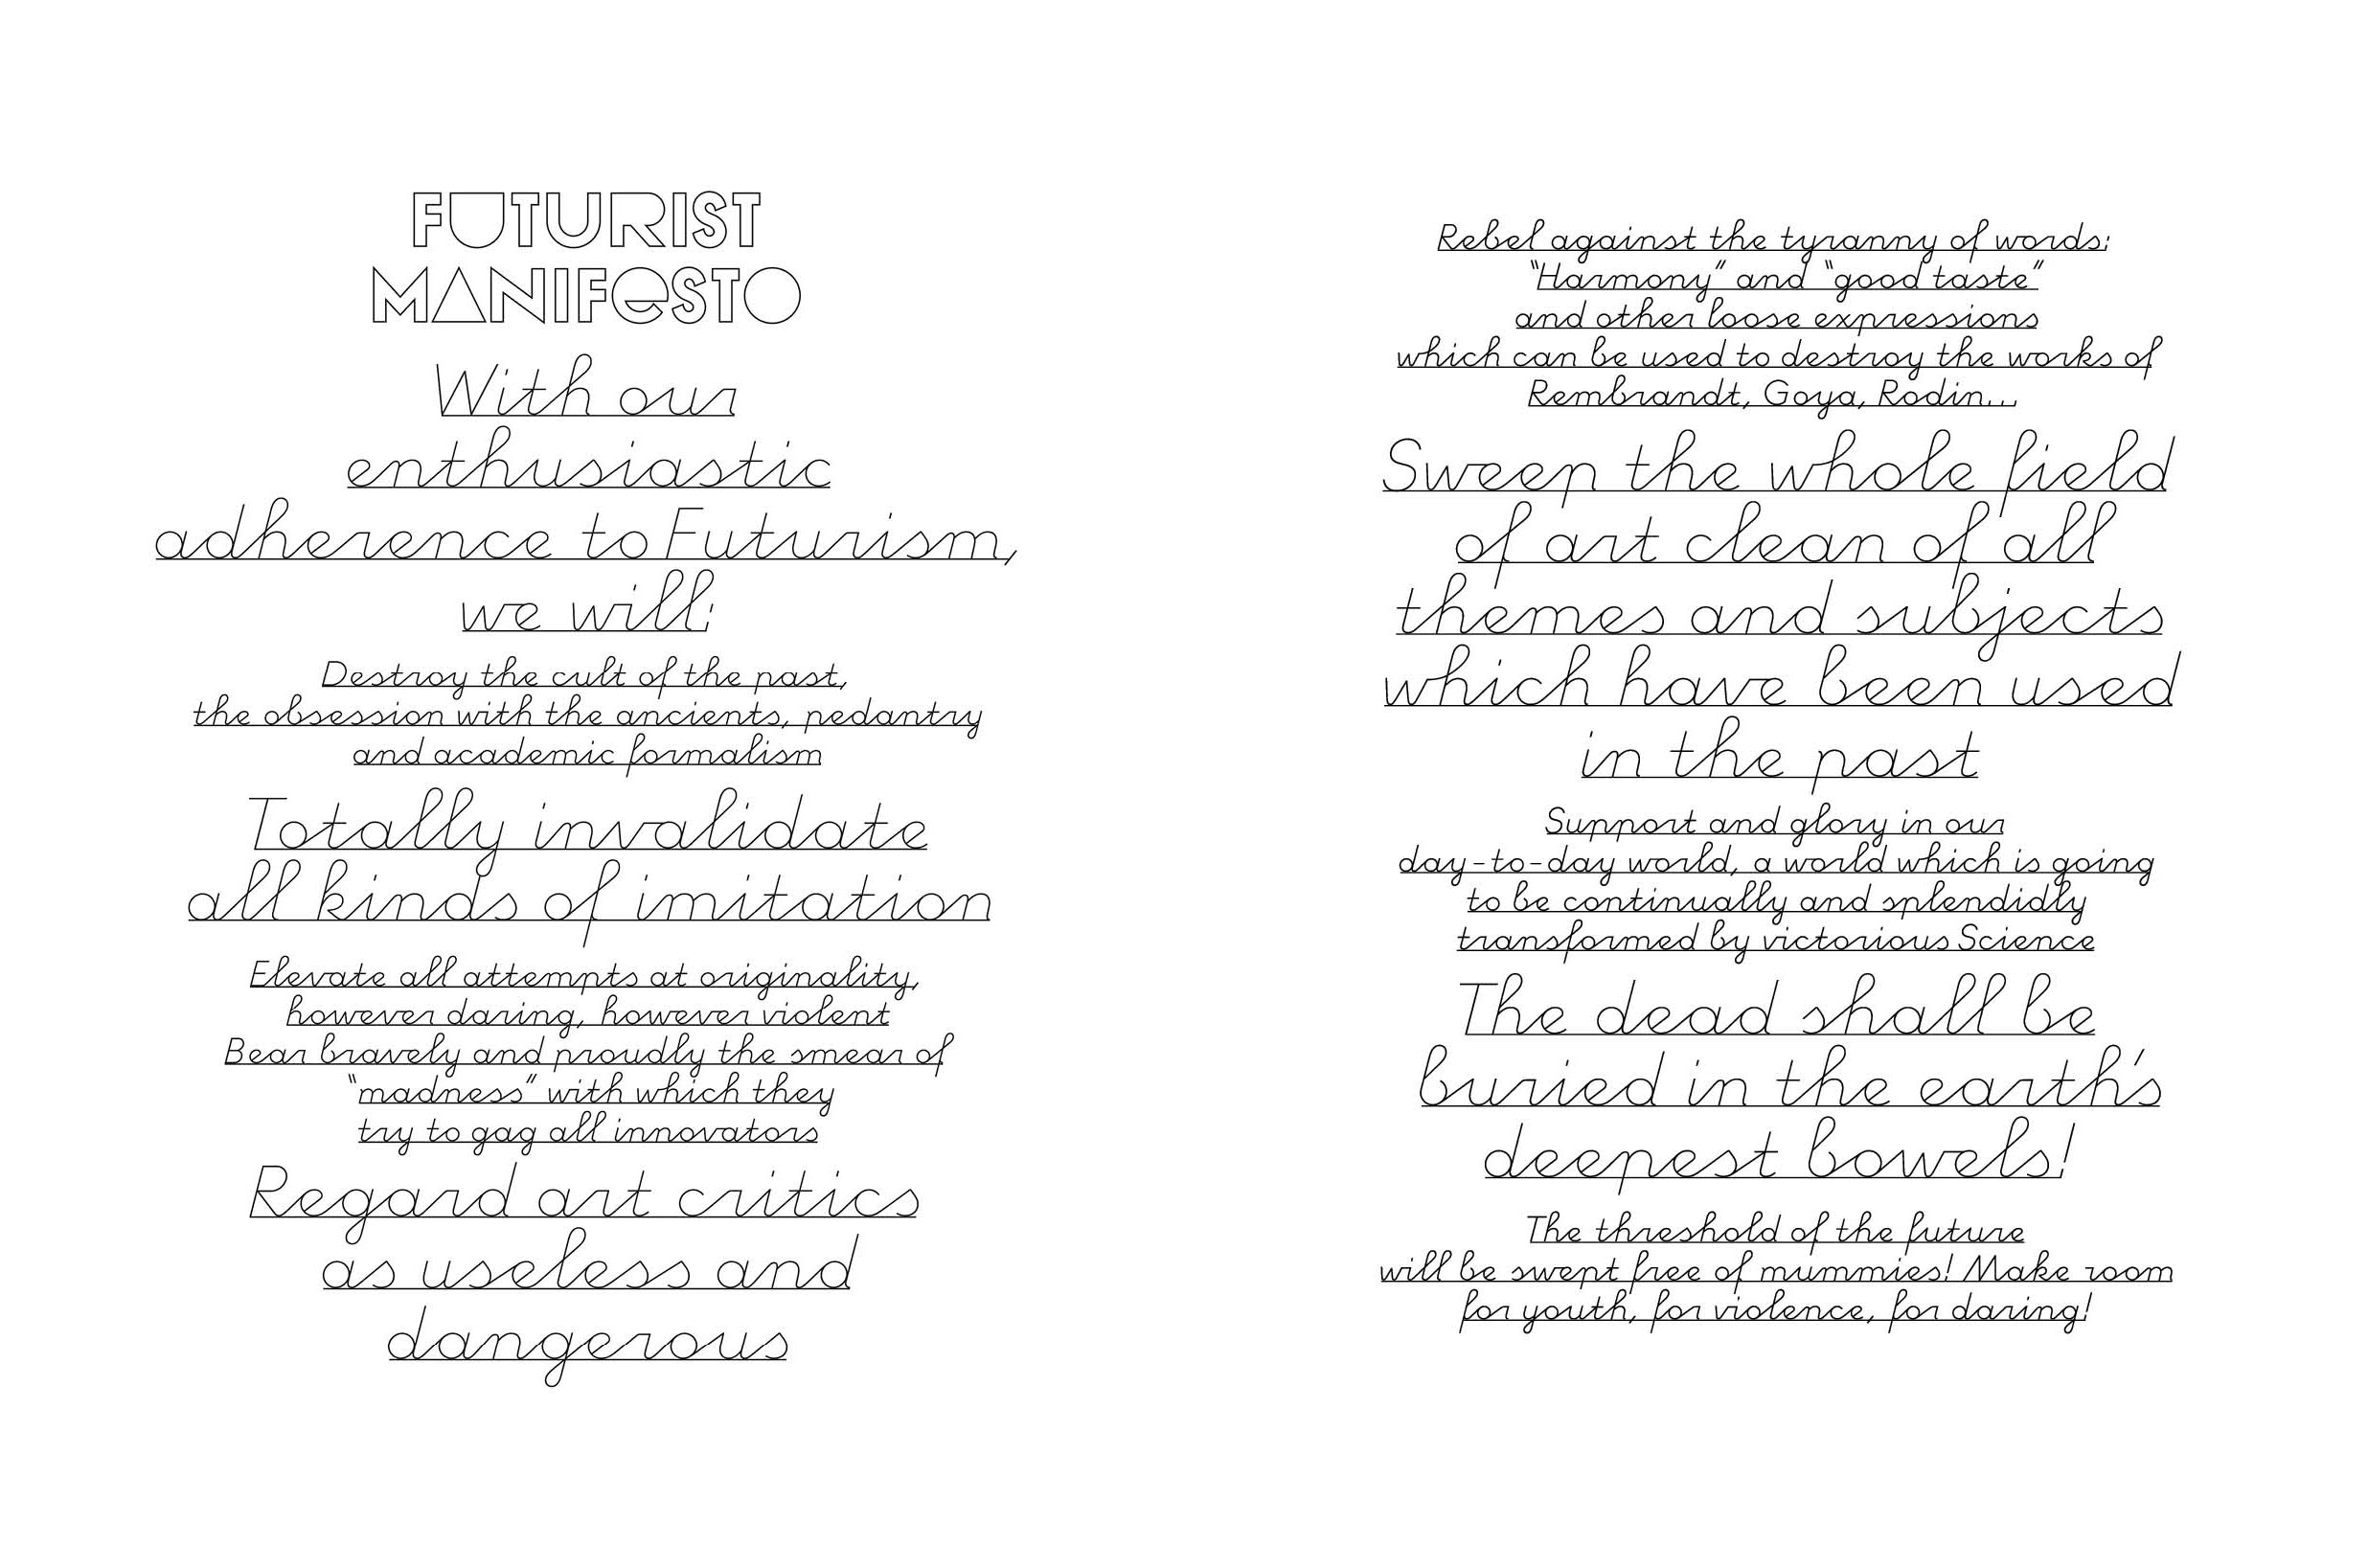 FUTURIST
MANIFeSTO
With our
enthusiastic
adherence to Futurism,
we will:
Destroy the cult of the past,
the obsession with the ancients, pedantry
and academic formalism
Totally invalidate
all kinds of imitation
Elevate all attempts at originality,
however daring, however violent
Bear bravely and proudly the smear of
“madness” with which they
try to gag all innovators
Regard art critics
as useless and
dangerous
Rebel against the tyranny of words:
“Harmony” and “good taste”
and other loose expressions
which can be used to destroy the works of
Rembrandt, Goya, Rodin...
Sweep the whole field
of art clean of all
themes and subjects
which have been used
in the past
Support and glory in our
day-to-day world, a world which is going
to be continually and splendidly
transformed by victorious Science
The dead shall be
buried in the earth’s
deepest bowels!
The threshold of the future
will be swept free of mummies! Make room
for youth, for violence, for daring!